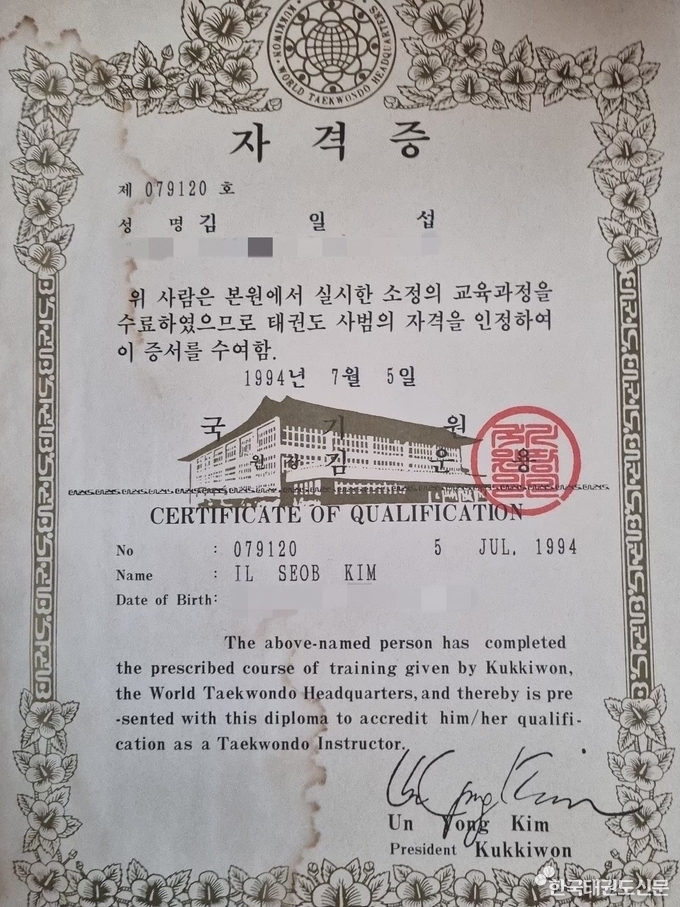 KUKKIWON · WORLD TAEKWONDO HEADQUARTERS
자격증
제 079120 호
성 명 김 일 섭
위 사람은 본원에서 실시한 소정의 교육과정을
수료하였으므로 태권도 사범의 자격을 인정하여
이 증서를 수여함.
1994년 7월 5일
국 기 원
원 장 김 운 용
CERTIFICATE OF QUALIFICATION
No : 079120 5 JUL. 1994
Name : IL SEOB KIM
Date of Birth:
The above-named person has completed
the prescribed course of training given by Kukkiwon,
the World Taekwondo Headquarters, and thereby is pre
-sented with this diploma to accredit him/her qualifi-
cation as a Taekwondo Instructor.
Un Yong Kim
Un Yong Kim
President Kukkiwon
한국태권도신문